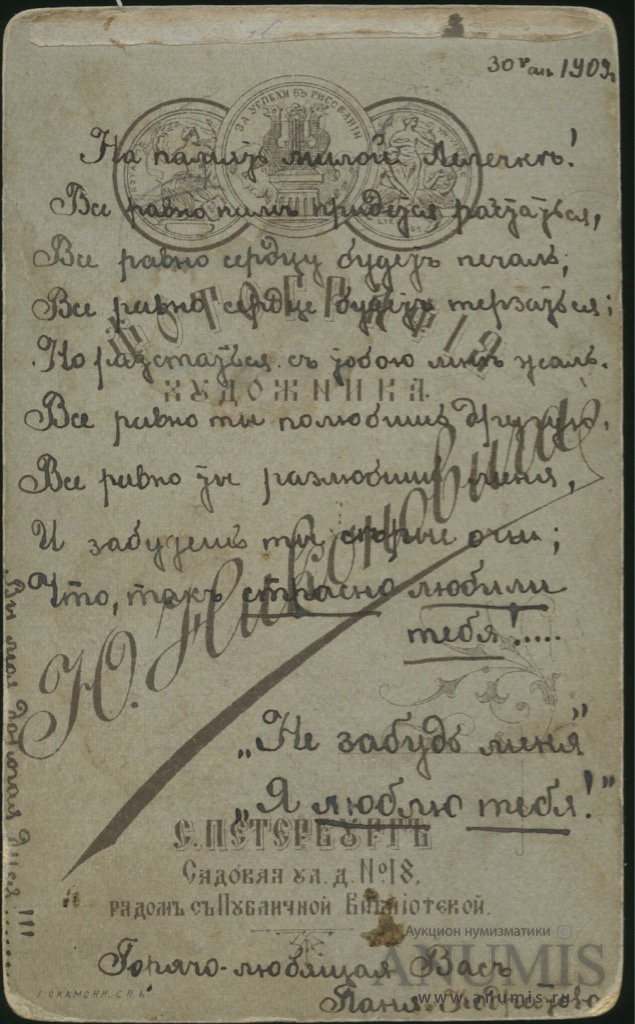 30го ап. 1909г
На память милой Лелечкѣ!
ЗА УСПѢХИ ВЪ РИСОВАНІИ
Все равно намъ придется растаться,
Все равно сердцу будетъ печаль,
Все равно сердце будетъ терзаться;
ФОТОГРАФІЯ
Но разстаться съ тобою мнѣ жаль.
ХУДОЖНИКА
Все равно ты полюбишь другую,
Все равно ты разлюбишь меня,
И забудешь ты сѣрые очи;
Что, такъ страсно любили
тебя!....
Ю. Николовича
„Не забудь меня"
„Я люблю тебя!"
С.ПЕТЕРБУРГЪ
Садовая ул. д. №18,
рядомъ съ Публичной Библіотекой.
Горячо-любящая Васъ
Паня.
Вы моя дорогая !!!
I. СКАМОНИ. С.П.Б.
Аукцион нумизматики
ANUMIS
www.anumis.ru